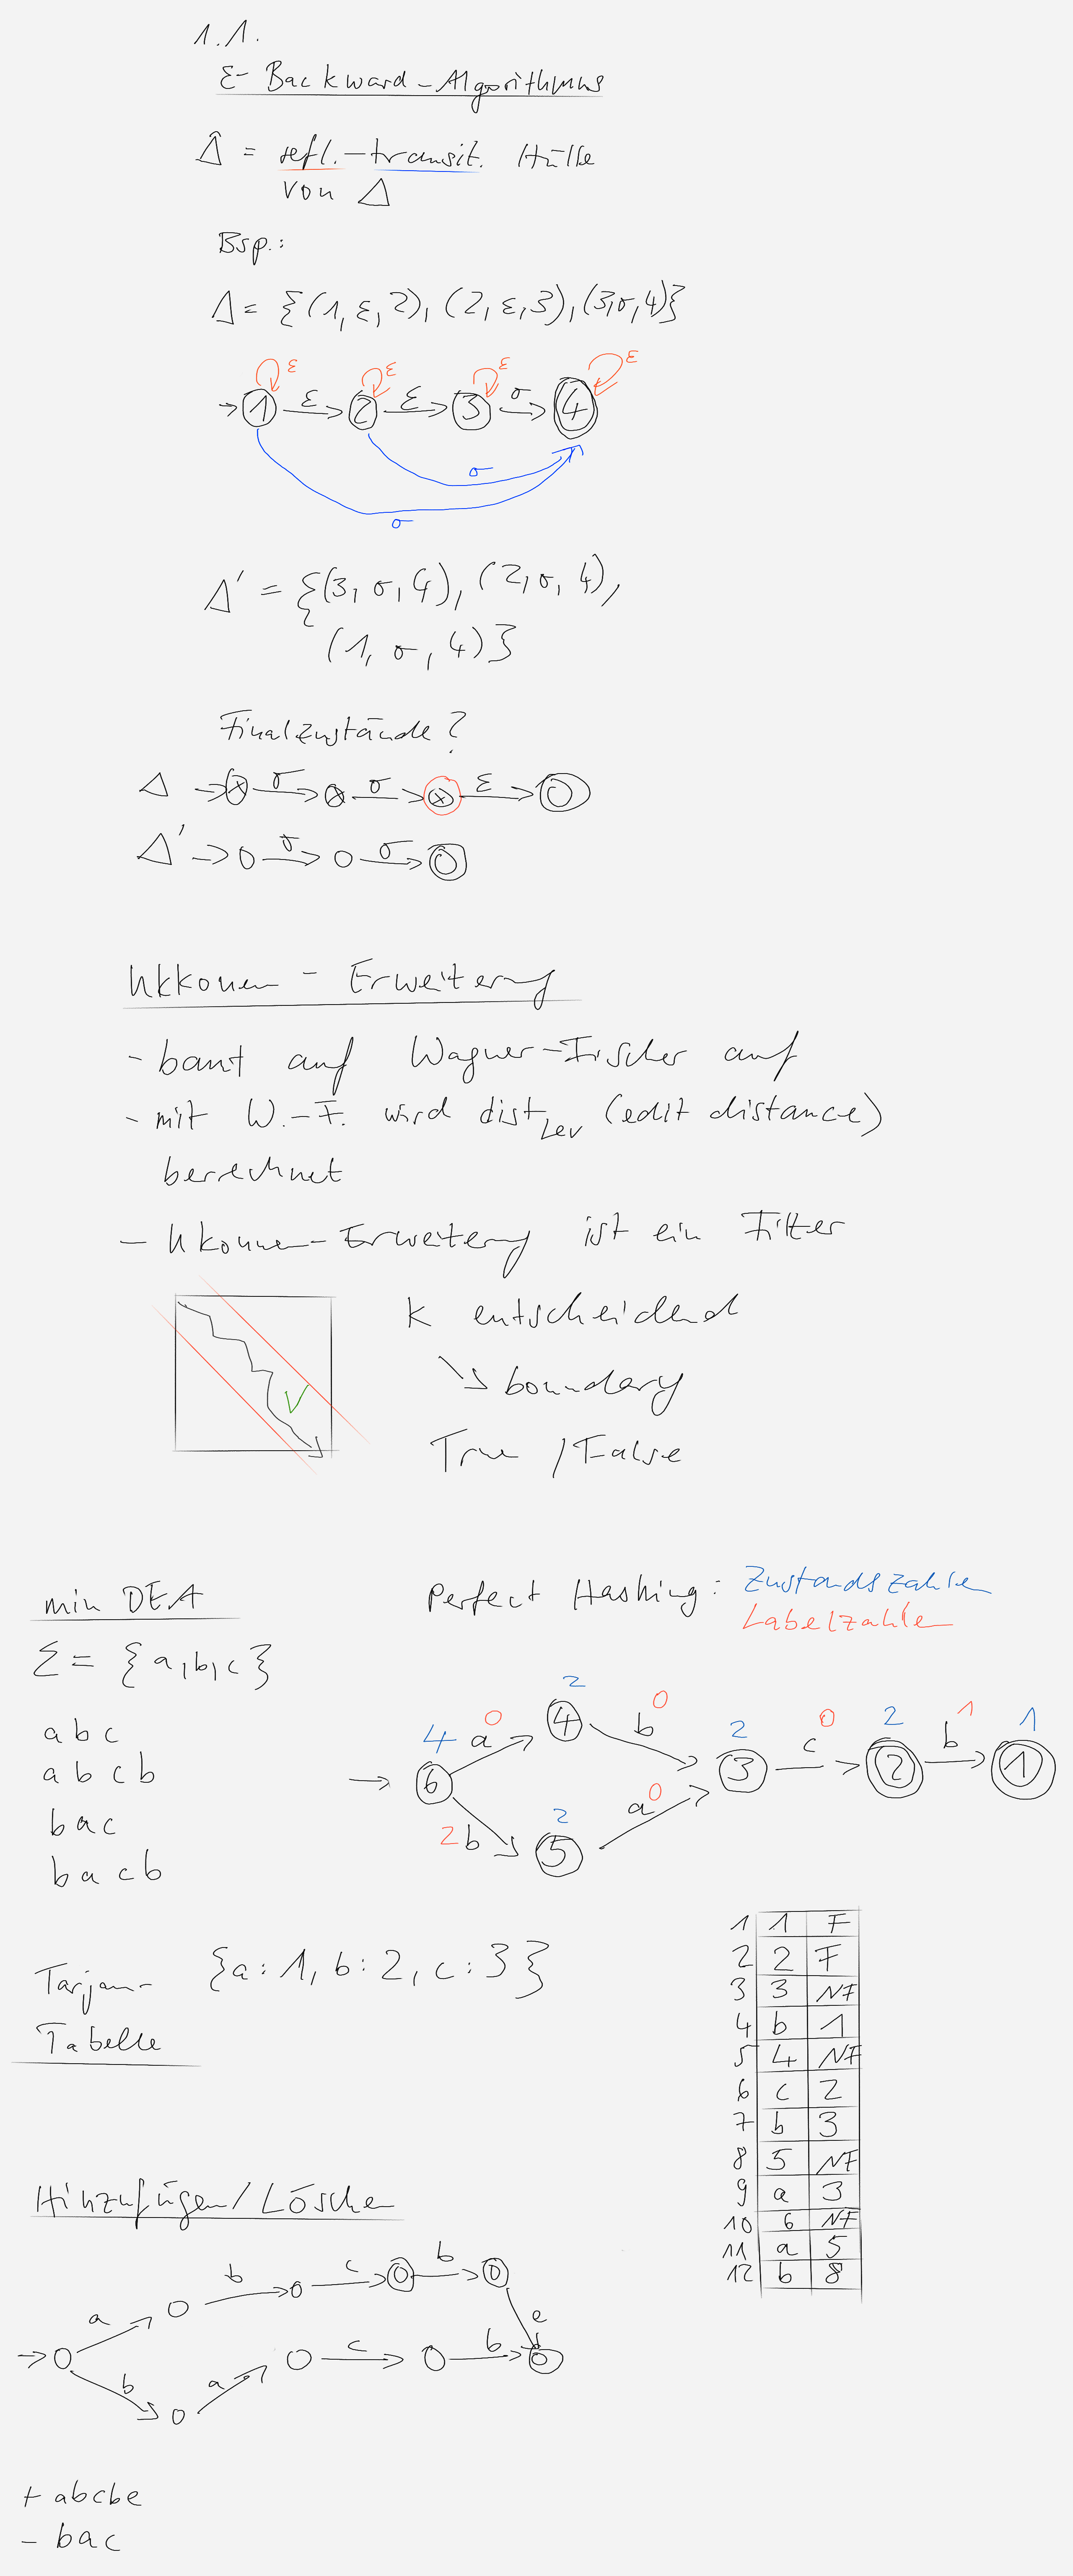 1.1.
ε-Backward-Algorithmus
Δ̂ = refl.-transit. Hülle
von Δ
Bsp.:
Δ = {(1,ε,2), (2,ε,3), (3,σ,4)}
ε ε ε ε
→ 1 ε 2 ε 3 σ 4
σ
σ
Δ' = {(3,σ,4), (2,σ,4),
(1,σ,4)}
Finalzustände?
Δ → σ σ ε
Δ' → σ σ
Ukkonen - Erweiterung
- baut auf Wagner-Fischer auf
- mit W.-F. wird dist Lev (edit distance)
berechnet
- Ukkonen-Erweiterung ist ein Filter
k entscheidend
↘ boundary
True / False
min DEA
Perfect Hashing: Zustandszahlen
Labelzahlen
Σ = {a,b,c}
abc
abcb
bac
bacb
2
4 a 0 4 b 0 2 c 0 2 b 1 1
→ 6 3 2 1
2 b 2 5 a 0
Tarjan-
Tabelle
{a:1, b:2, c:3}
1 1 F
2 2 F
3 3 NF
4 b 1
5 4 NF
6 c 2
7 b 3
8 5 NF
9 a 3
10 6 NF
11 a 5
12 b 8
Hinzufügen/Löschen
a b c b
e
b a c b
+ abcbe
- bac